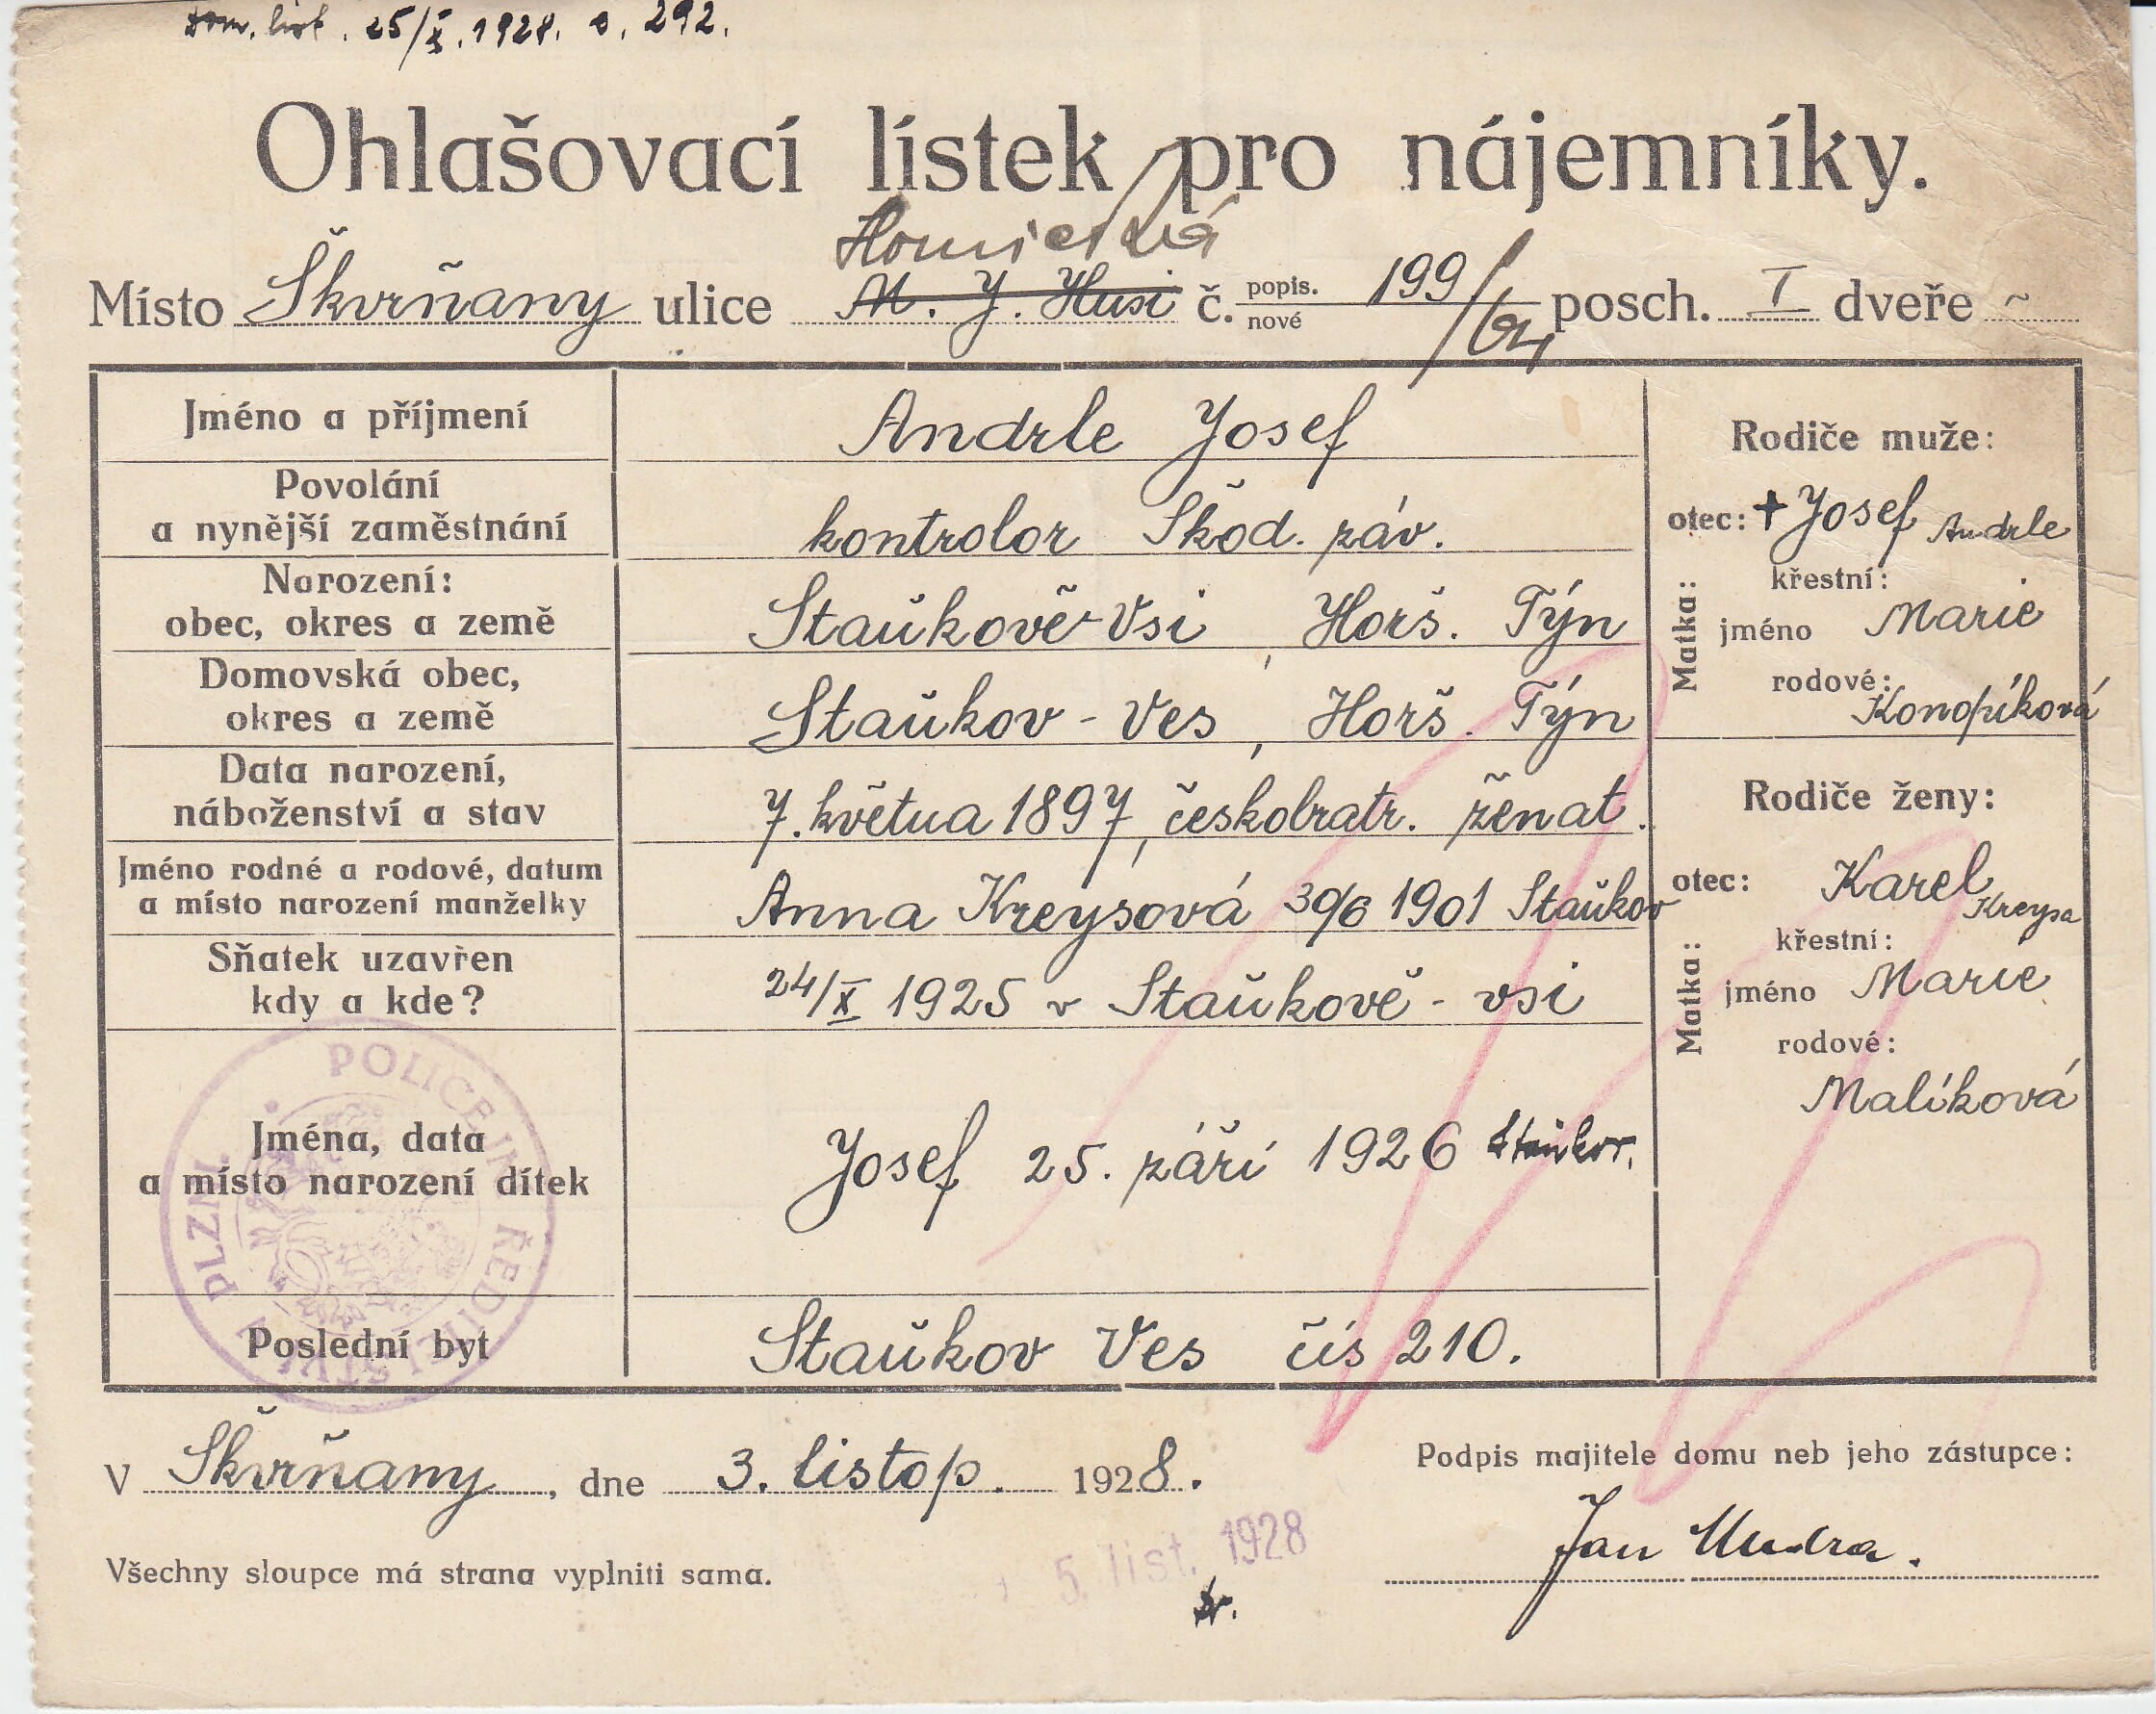 Dom. list. 25/X. 1928. č. 292.
Ohlašovací lístek pro nájemníky.
Hornická
Místo Škvrňany ulice M. J. Husi č. popis. nové 199/64 posch. I dveře ~
Jméno a příjmení Andrle Josef
Povolání
a nynější zaměstnání kontrolor Škod. záv.
Narození:
obec, okres a země Staňkově-Vsi, Horš. Týn
Domovská obec,
okres a země Staňkov-Ves, Horš. Týn
Data narození,
náboženství a stav 7. května 1897, českobratr. ženat.
Jméno rodné a rodové, datum
a místo narození manželky Anna Kreysová 30/6 1901 Staňkov
Sňatek uzavřen
kdy a kde? 24/X 1925 v Staňkově-vsi
Jména, data
a místo narození dítek Josef 25. září 1926 Staňkov.
Poslední byt Staňkov Ves čís 210.
Rodiče muže:
otec: + Josef Andrle
Matka:
křestní:
jméno Marie
rodové:
Konopíková
Rodiče ženy:
otec: Karel Kreysa
Matka:
křestní:
jméno Marie
rodové:
Malíková
POLICEJNÍ ŘEDITELSTVÍ V PLZNI.
V Škvrňany, dne 3. listop. 1928.
Podpis majitele domu neb jeho zástupce:
Jan Mudra.
Všechny sloupce má strana vyplniti sama.
5. list. 1928